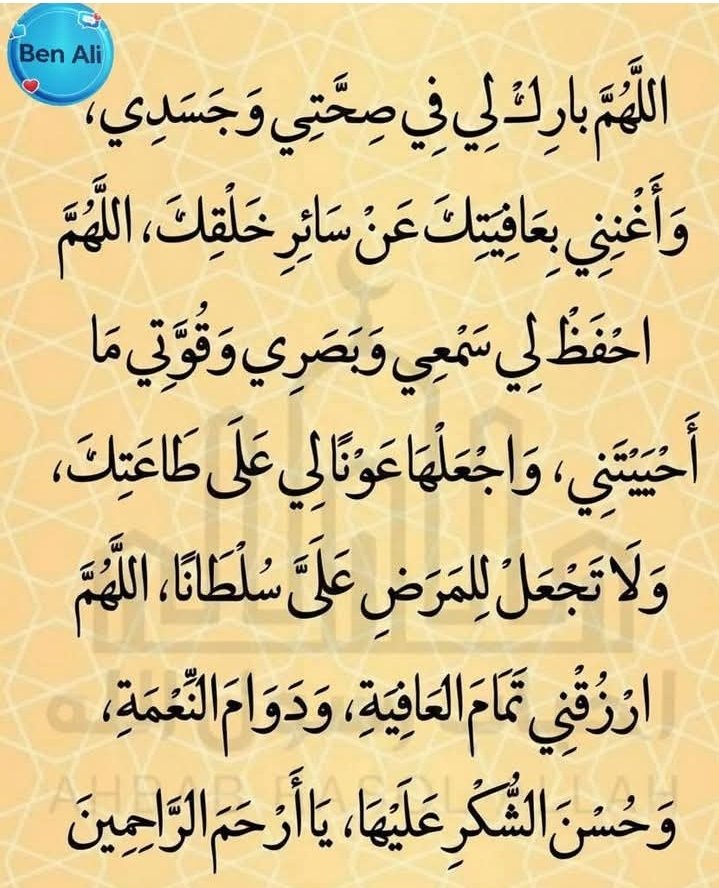 Ben Ali
اللَّهُمَّ بارِكْ لِي فِي صِحَّتِي وَجَسَدِي،
وَأَغْنِنِي بِعَافِيَتِكَ عَنْ سَائِرِ خَلْقِكَ، اللَّهُمَّ
احْفَظْ لِي سَمْعِي وَبَصَرِي وَقُوَّتِي مَا
أَحْيَيْتَنِي، وَاجْعَلْهَا عَوْنًا لِي عَلَى طَاعَتِكَ،
وَلَا تَجْعَلْ لِلمَرَضِ عَلَيَّ سُلْطَانًا، اللَّهُمَّ
ارْزُقْنِي تَمَامَ العَافِيَةِ، وَدَوَامَ النِّعْمَةِ،
وَحُسْنَ الشُّكْرِ عَلَيْهَا، يَا أَرْحَمَ الرَّاحِمِينَ
AHBAB RASOL ALLAH